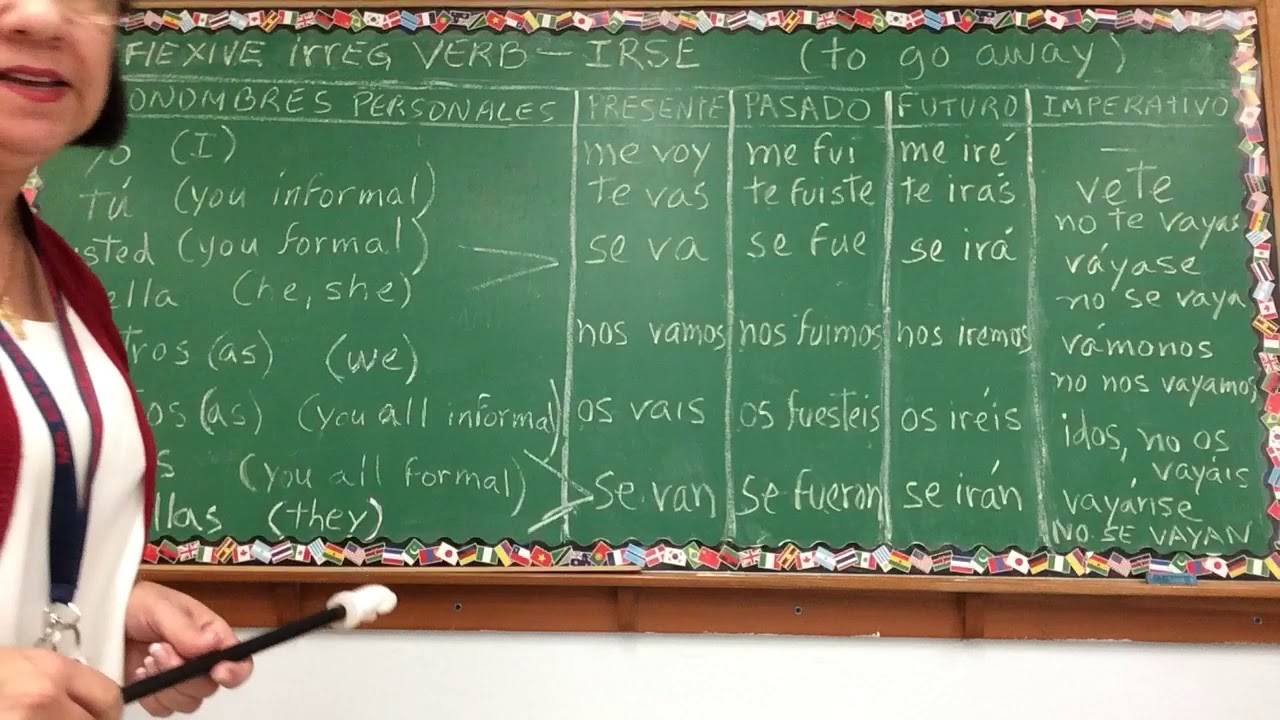 FlEXIVE irrEG VERB — IRSE (to go away)
ONOMBRES PERSONALES PRESENTE PASADO FUTURO IMPERATIVO
yo (I) me voy me fui me iré —
tú (you informal) te vas te fuiste te irás vete
no te vayas
sted (you formal) se va se fue se irá váyase
ella (he, she) no se vaya
tros (as) (we) nos vamos nos fuimos nos iremos vámonos
no nos vayamos
os (as) (you all informal) os vais os fuesteis os iréis idos, no os
vayáis
s (you all formal) se van se fueron se irán vayánse
llas (they) NO SE VAYAN